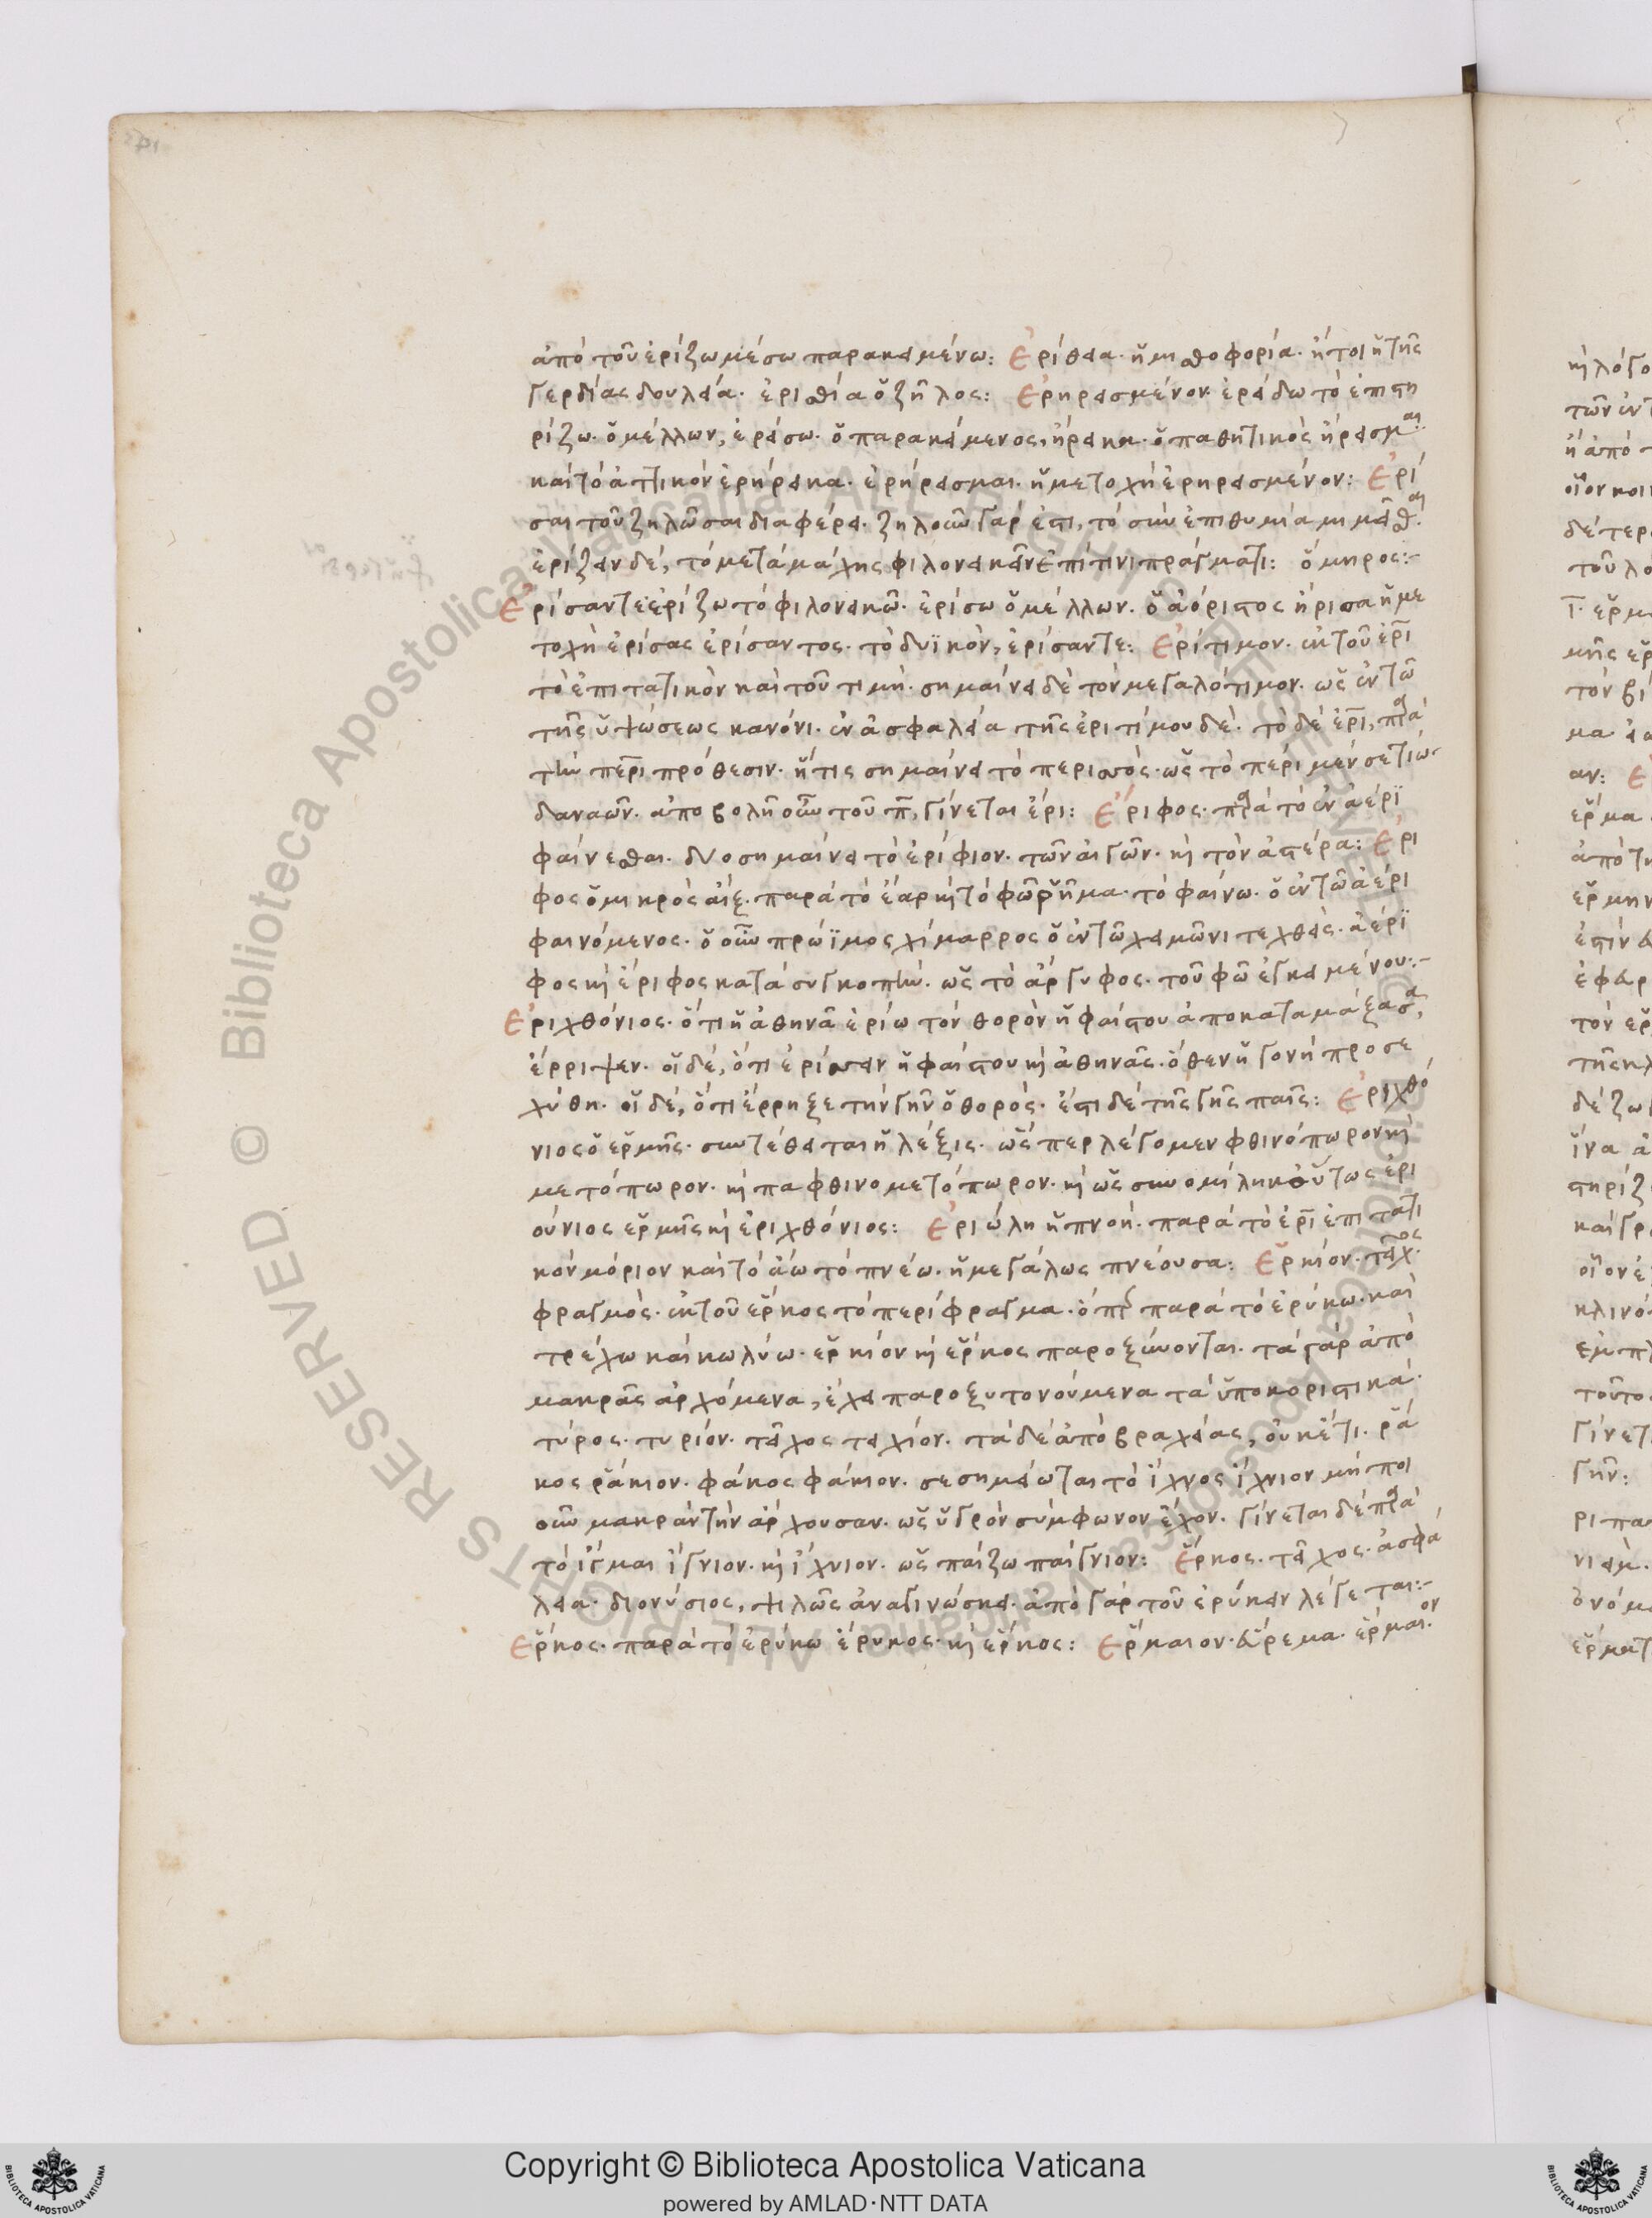 ἀπὸ τοῦ ἐρίζω μέσω παρακειμένω: Ἐρίθεια· ἡ μισθοφορία· ἤτοι ἡ τῆς
γερδίας δουλεία· ἐριθία ὁ ζῆλος: Ἐρηρεισμένον· ἐρείδω τὸ ἐπιστη
ρίζω· ὁ μέλλων, ἐρείσω· ὁ παρακείμενος, ἤρεικα· ὁ παθητικὸς ἤρεισμαι·
καὶ τὸ ἀττικὸν ἐρήρεικα· ἐρήρεισμαι· ἡ μετοχὴ ἐρηρεισμένον: Ἐρί
σαι τοῦ ζηλῶσαι διαφέρει· ζηλοῦν γάρ ἐστι, τὸ σὺν ἐπιθυμία μιμεῖσθαι·
ἐρίζειν δέ, τὸ μετὰ μάχης φιλονεικεῖν ἐπί τινι πράγματι: ὅμηρος:-
Ἐρίσαντε ἐρίζω τὸ φιλονεικῶ· ἐρίσω ὁ μέλλων· ὁ ἀόριστος ἤρισα ἡ με
τοχὴ ἐρίσας ἐρίσαντος· τὸ δυϊκὸν, ἐρίσαντε: Ἐρίτιμον· ἐκ τοῦ ἐρι
τὸ ἐπιτατικὸν καὶ τοῦ τιμὴ· σημαίνει δὲ τὸν μεγαλότιμον· ὡς ἐν τῶ
τῆς ὑψώσεως κανόνι· ἐν ἀσφαλεία τῆς ἐριτίμου δὲ· τὸ δὲ ἐρι, παρὰ
τὴν περι πρόθεσιν· ἥτις σημαίνει τὸ περισσὸς· ὡς τὸ πέρι μέν σε τίω
δαναῶν· ἀποβολῆ οὖν τοῦ π, γίνεται ἔρι: Ἔριφος· παρὰ τὸ ἐν ἀέρϊ
φαίνεσθαι· δύο σημαίνει τὸ ἐρίφιον· τῶν αἰγῶν· κὶ τὸν ἀστέρα: Ἐρι
φος ὁ μικρὸς αἴξ· παρὰ τὸ ἔαρ κὶ τὸ φῶ ῥῆμα· τὸ φαίνω· ὁ ἐν τῶ ἀέρι
φαινόμενος· ὁ οὖν πρώϊμος χίμαρρος ὁ ἐν τῶ χειμῶνι τεχθεὶς· ἀέρϊ
φος κὶ ἔριφος κατὰ συγκοπὴν· ὡς τὸ ἄργυφος· τοῦ φῶ ἐγκειμένου:-
Ἐριχθόνιος· ὅτι ἡ ἀθηνᾶ ἐρίω τὸν θορὸν ἡφαίστου ἀποκαταμάξασα,
ἔρριψεν· οἱ δέ, ὅτι ἐρίσαν ἡφαίστου κὶ ἀθηνᾶς· ὅθεν ἡ γονὴ προσε
χύθη· οἱ δέ, ὅτι ἔρρηξε τὴν γῆν ὁ θορὸς· ἔστι δὲ τῆς γῆς παῖς: Ἐριχθό
νιος ὁ ἑρμῆς· συντέθειται ἡ λέξις· ὥσπερ λέγομεν φθινόπωρον κὶ
μετόπωρον· κὶ πα φθινομετόπωρον· κὶ ὡς συνομίληκ οὕτως ἐρι
ούνιος ἑρμῆς κὶ ἐριχθόνιος: Ἐριώλη ἡ πνοὴ· παρὰ τὸ ἐρι ἐπιτατι
κὸν μόριον καὶ τὸ ἄω τὸ πνέω· ἡ μεγάλως πνέουσα: Ἑρκίον· τεῖχος·
φραγμὸς· ἐκ τοῦ ἕρκος τὸ περίφραγμα· ὅπερ παρὰ τὸ ἐρύκω· καὶ
τρέχω καὶ κωλύω· ἑρκίον κὶ ἕρκος παροξύνονται· τὰ γὰρ ἀπὸ
μακρᾶς ἀρχόμενα, ἔχει παροξυτονούμενα τὰ ὑποκοριστικά·
τύρος· τυρίον· τεῖχος τειχίον· τὰ δὲ ἀπὸ βραχείας, οὐκέτι· ῥά
κος ῥάκιον· φάκος φάκιον· σεσημείωται τὸ ἴχνος ἴχνιον μὴ ποι
οῦν μακρὰν τὴν ἄρχουσαν· ὡς ὑγρὸν σύμφωνον ἔχον· γίνεται δὲ παρὰ
τὸ ἶγμαι ἴγνιον· κὶ ἴχνιον· ὡς παίζω παίγνιον: Ἕρκος· τεῖχος· ἀσφά
λεια· διονύσιος, ψιλῶς ἀναγινώσκει· ἀπὸ γὰρ τοῦ ἐρύκειν λέγεται:-
Ἕρκος· παρὰ τὸ ἐρύκω ἔρυκος· κὶ ἕρκος: Ἕρμαιον· εὕρεμα· ἕρμαιον·
Copyright © Biblioteca Apostolica Vaticana
powered by AMLAD·NTT DATA